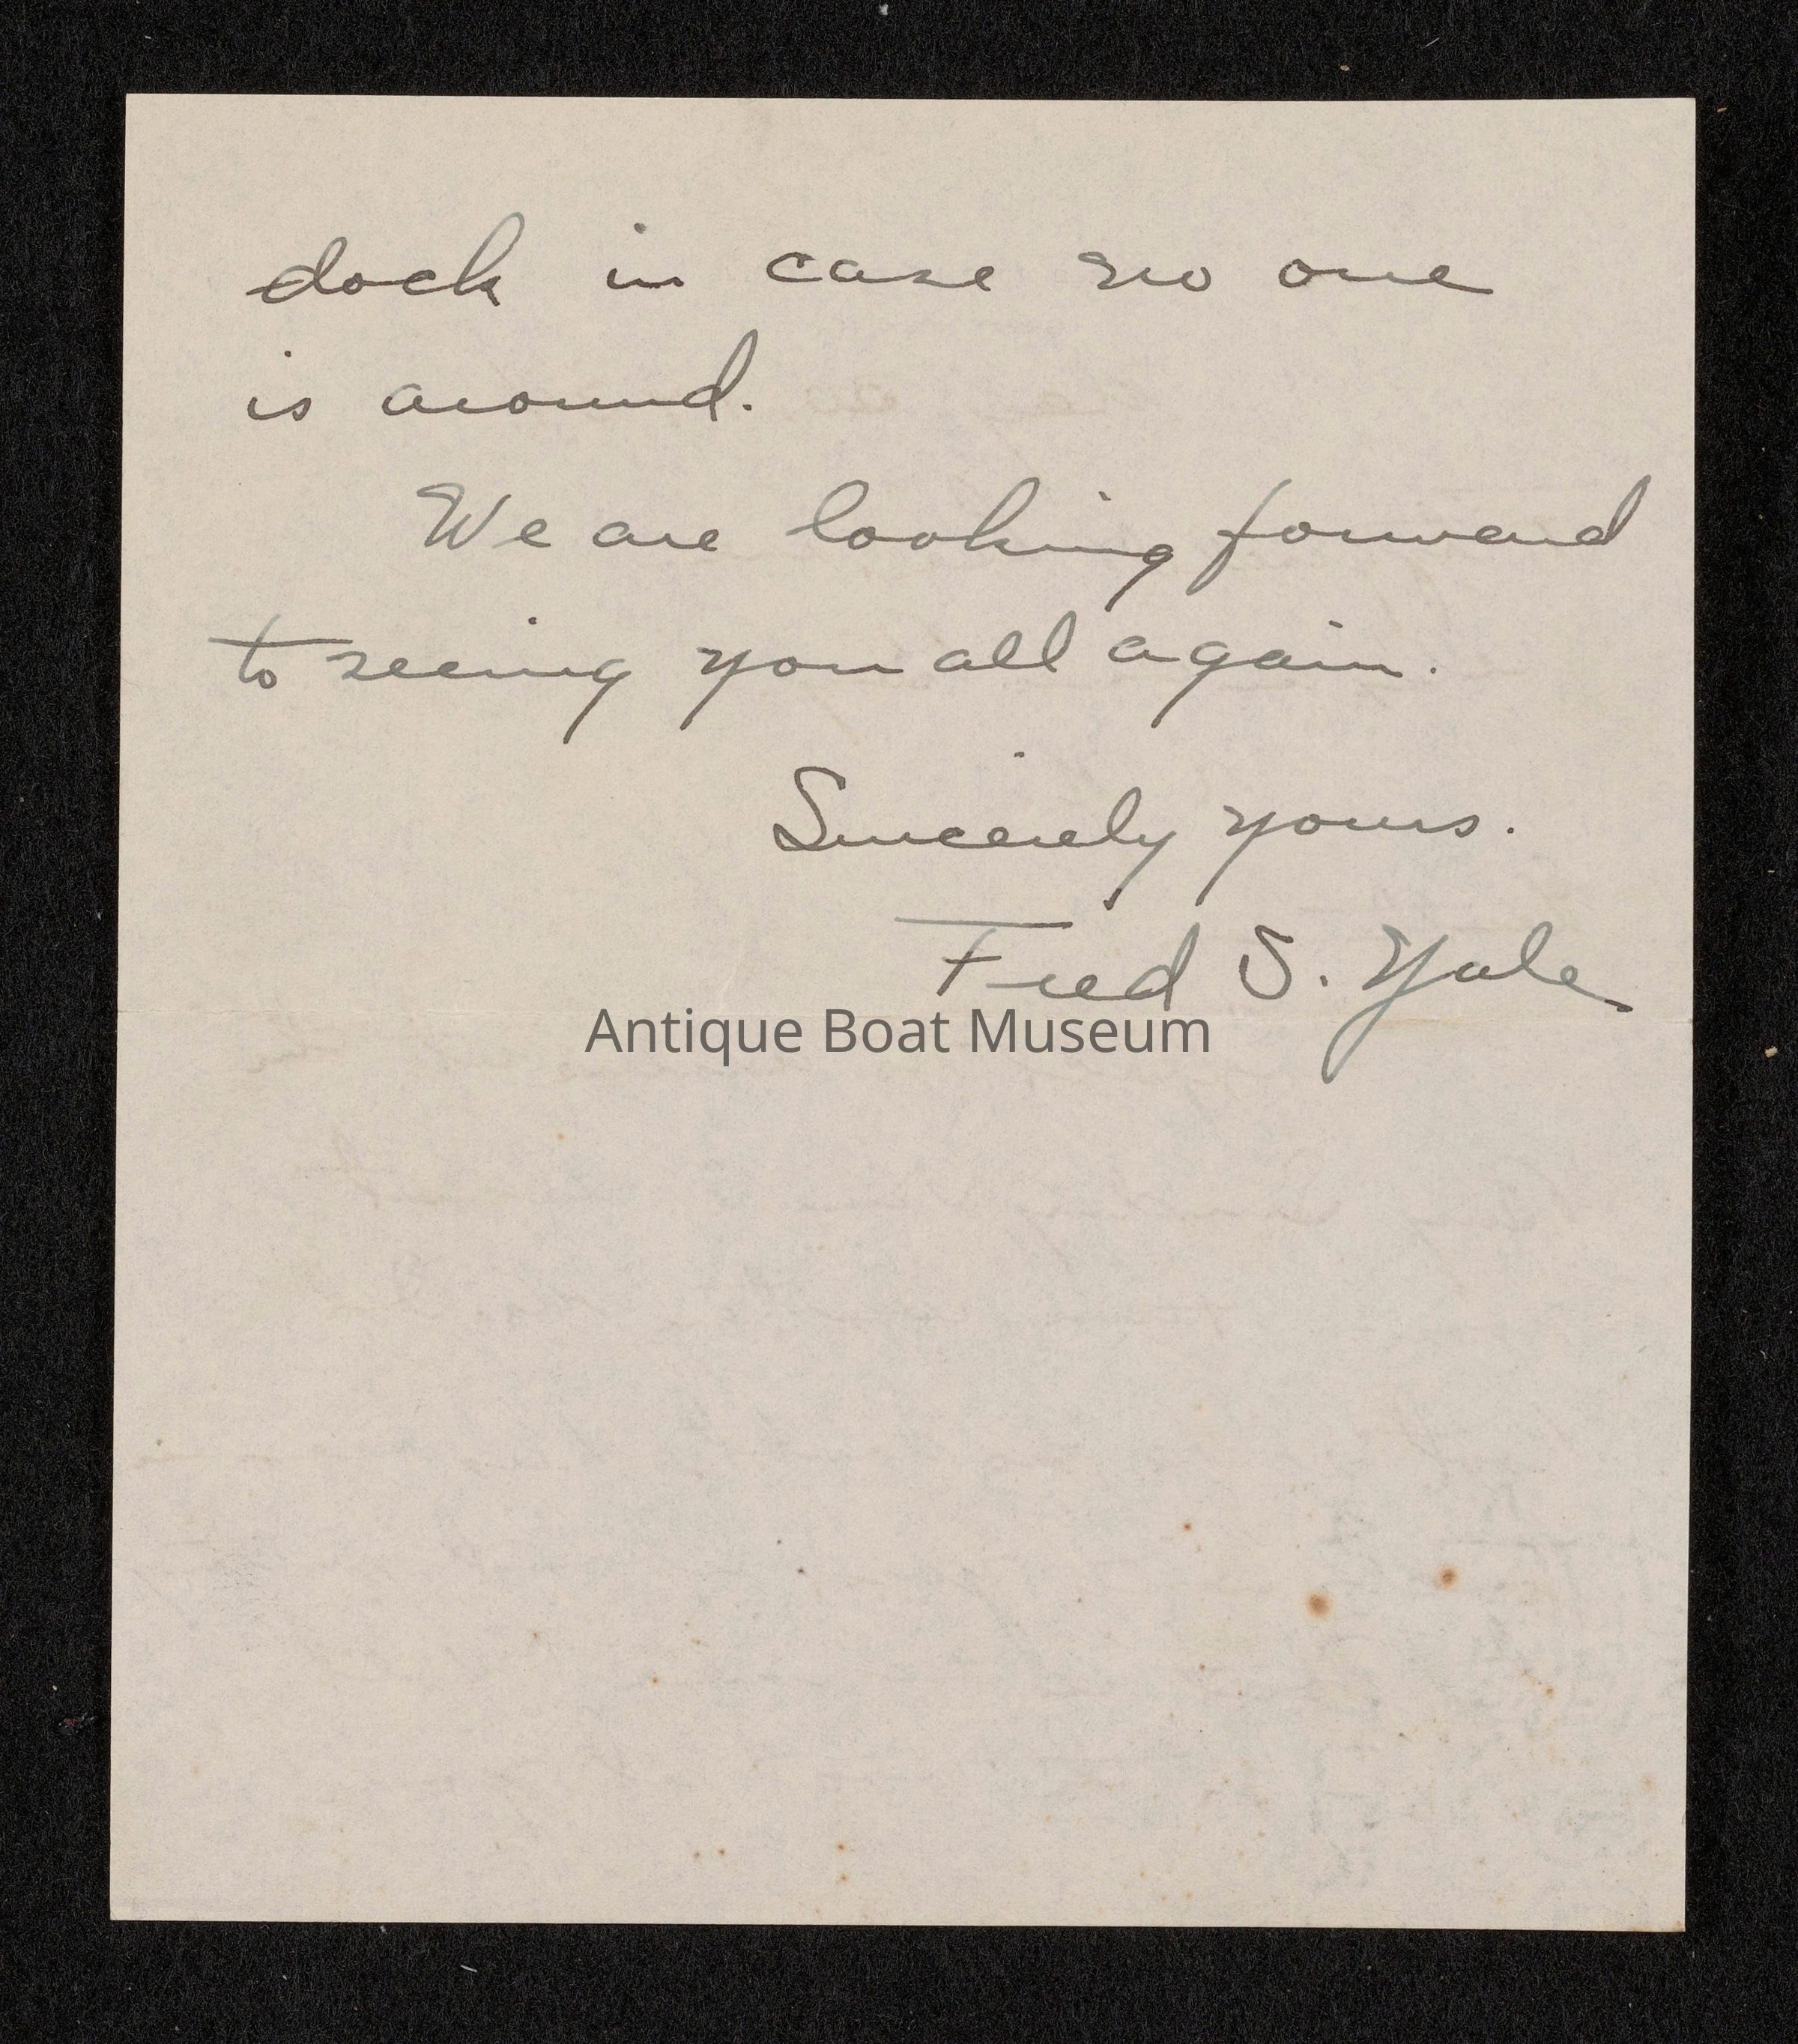 dock in case no one
is around.
We are looking forward
to seeing you all again.
Sincerely yours.
Fred S. Yale
Antique Boat Museum